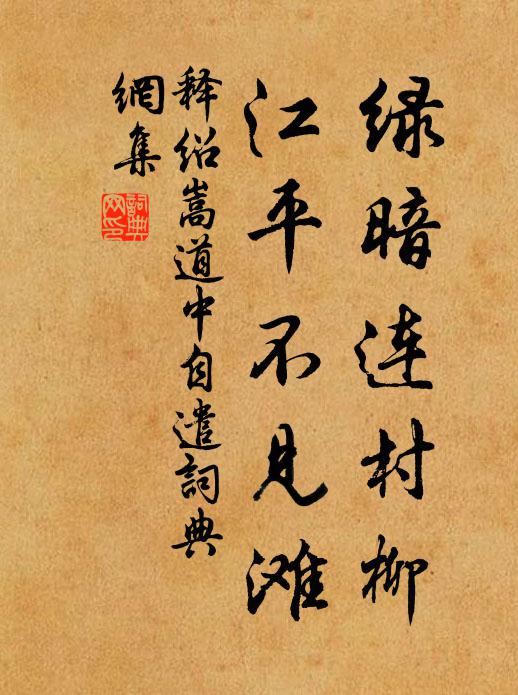 绿暗连村柳
江平不见滩
释绍嵩道中自遣词典
網集
詞典
网印